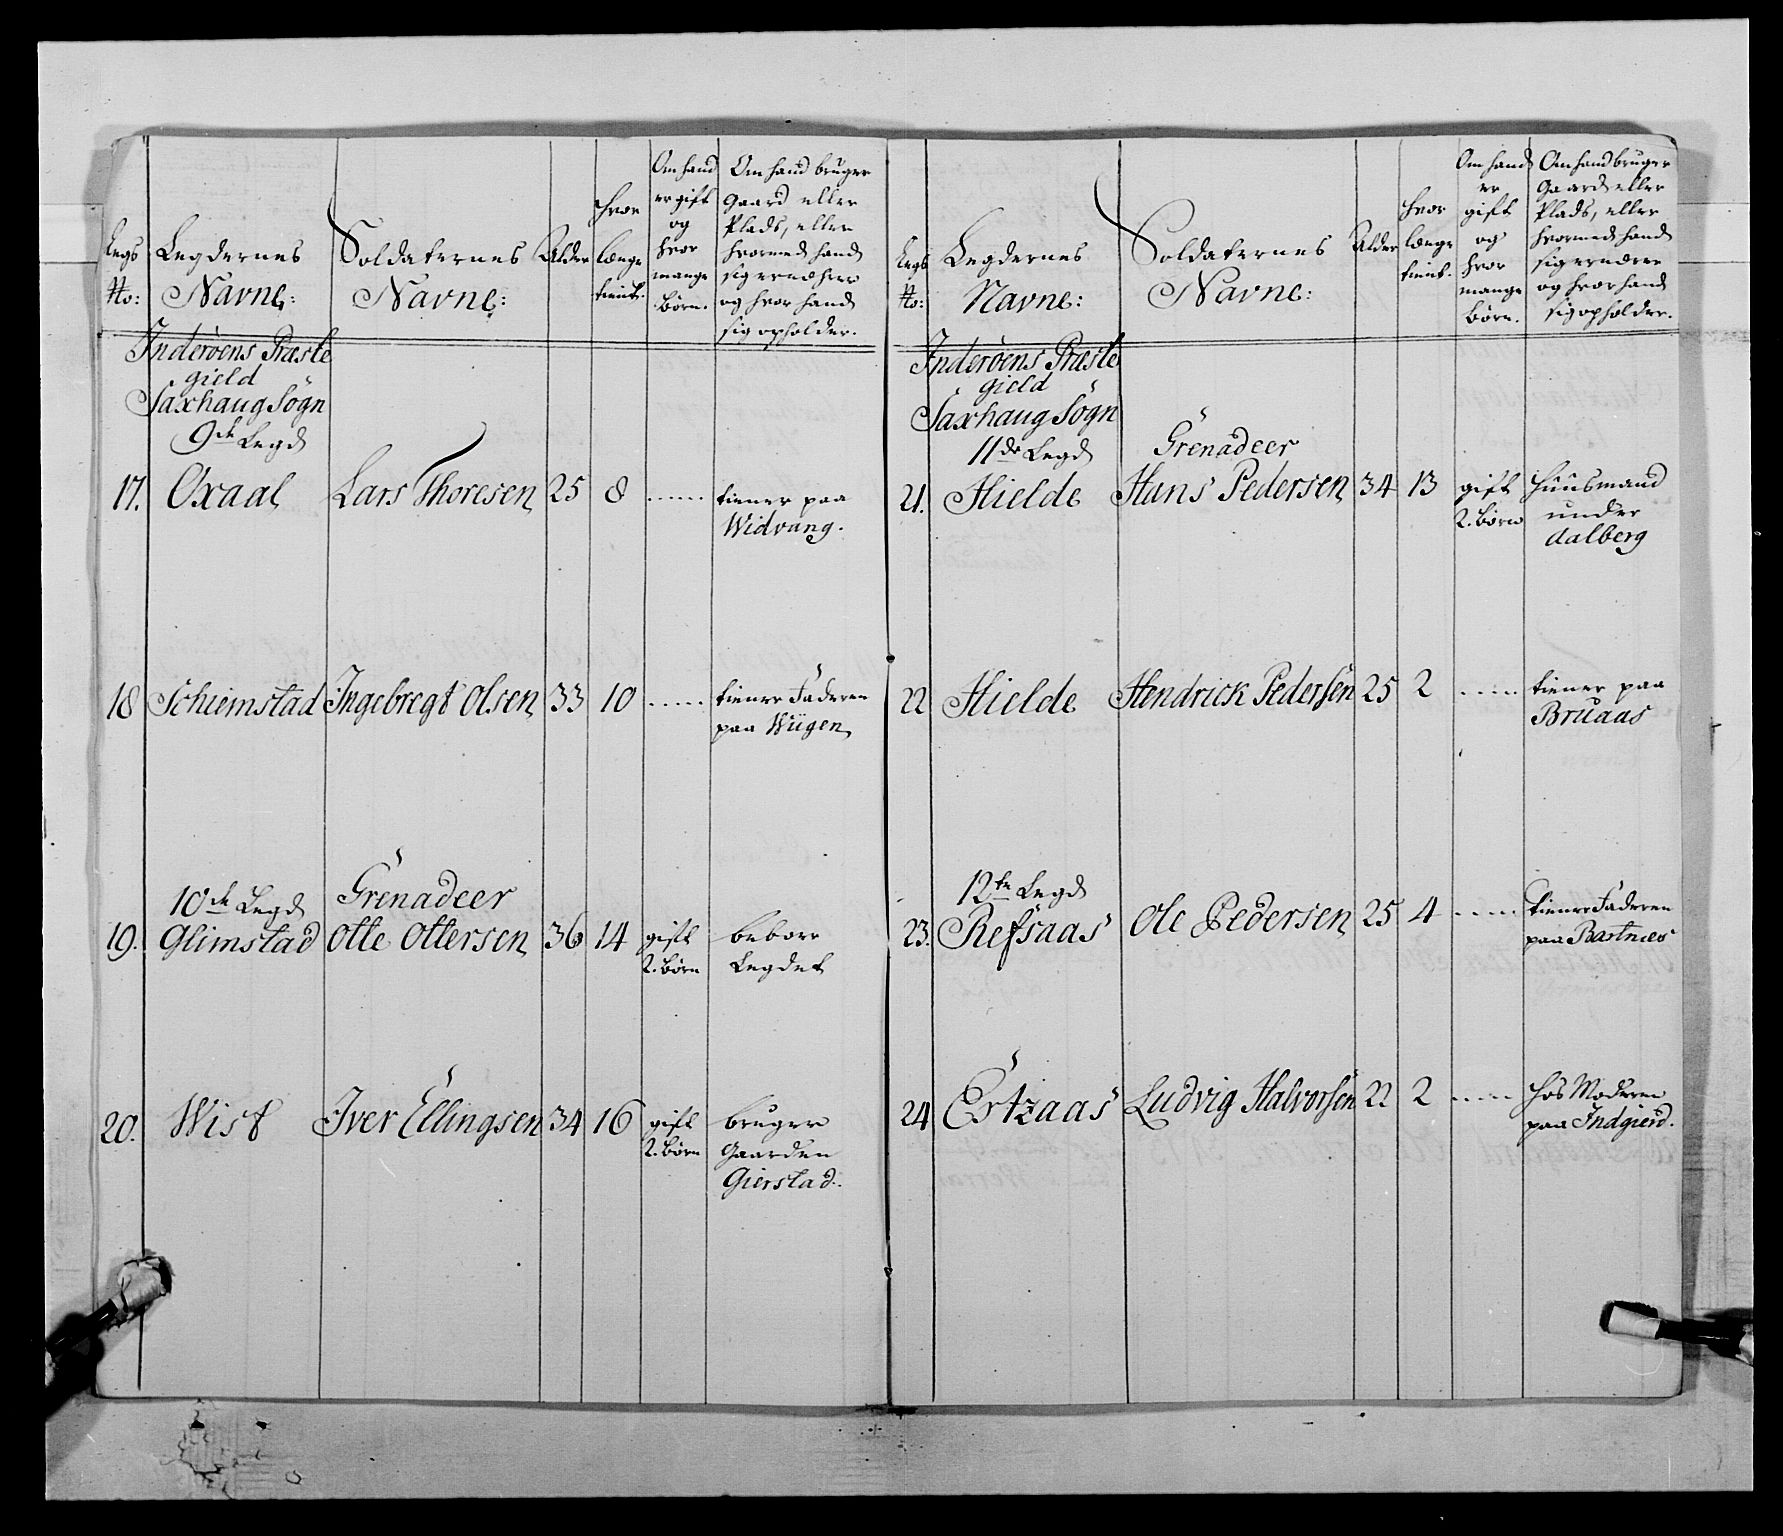 Legs
No:
Legdernes
Navne:
Soldaternes
Navne:
Alder
hvor
længe
tient.
Om hand
er gift
og
hvor
mange
børn.
Om hand bruger
Gaard eller
Plads, eller
hvormed hand
sig ernærer
og hvor hand
sig opholder.
Inderöens Præste
gield
Saxhaug Sögn
9de Legd
17. Oxaal Lars Thoresen 25 8 ...... tiener paa
Widvang.
18 Schiemstad Ingebregt Olsen 33 10 ...... tiener Faderen
paa Wiigen
10de Legd Grenadeer
19. Glimstad Otte Ottersen 36 14 gift beboer
2. börn Legdet
20. Wist Iver Ellingsen 34 16 gift bruger
2. börn Gaarden
Gierstad.
Legs
No:
Legdernes
Navne:
Soldaternes
Navne:
Alder
hvor
længe
tient.
Om hand
er
gift
og
hvor
mange
börn.
Om hand bruger
Gaard eller
Plads, eller
hvormed hand
sig ernærer
og hvor hand
sig opholder.
Inderöens Præste
gield
Saxhaug Sögn
11de Legd Grenadeer
21. Hielde Hans Pedersen 34 13 gift Huusmand
2. börn under
dalberg
22 Hielde Hendrick Pedersen 25 2 ...... tiener paa
Bruaas
12te Legd
23. Refsaas Ole Pedersen 25 4 ...... tiener Faderen
paa Bartnes
24 Ertzaas Ludvig Halvorsen 22 2 ...... hos Moderen
paa Indgierd.